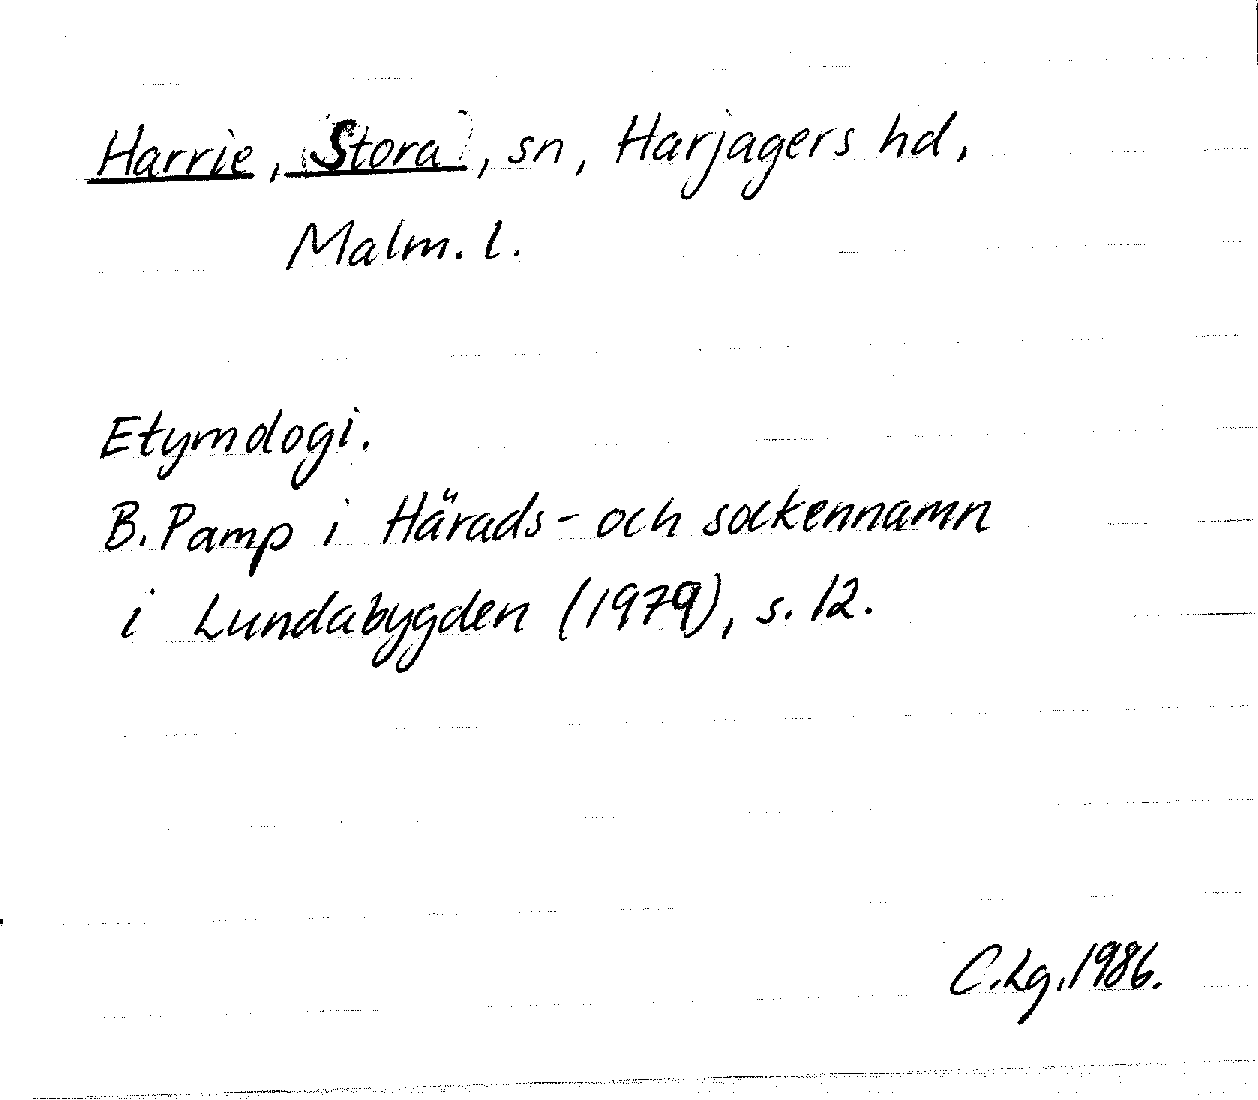 Harrie, Stora, sn, Harjagers hd,
Malm. l.
Etymologi.
B. Pamp i Härads- och sockennamn
i Lundabygden (1979), s. 12.
C. Lg. 1986.